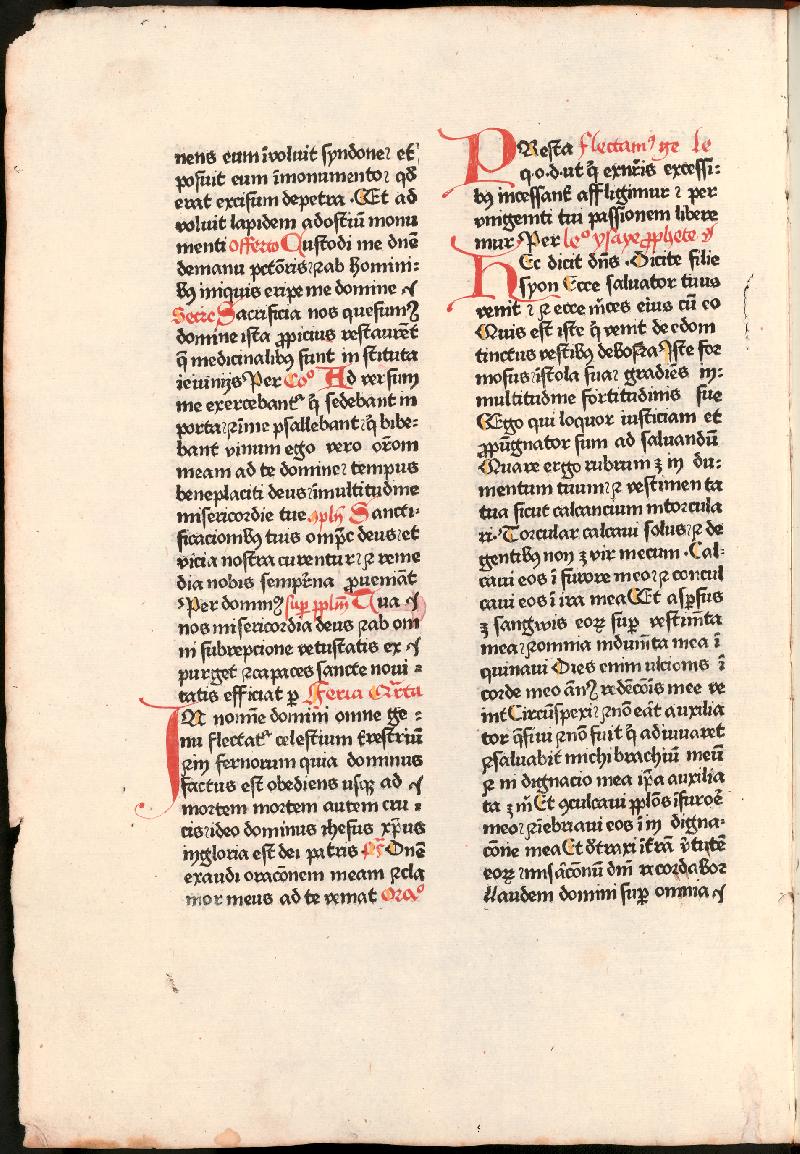 nens eum īvoluit syndone⁊ et
posuit eum īmonumento⁊ qd̄
erat excisum depetra · Et ad
voluit lapidem adostiū monu
menti offerto Custodi me dn̄e
demanu pctōris ⁊ ab homini:
bꝰ iniquis eripe me domine
Secre Sacrificia nos quesumꝰ
domine ista ꝓpicius restaurēt
q̄ medicinalibꝰ sunt in stituta
ieiunijs Per Coᵒ Ad versum
me exercebantᷣ q̄ sedebant in
porta⁊ ⁊ īme psallebant q̄ bibe:
bant vinum ego vero orōm
meam ad te domine⁊ tempus
beneplaciti deus īmultitudine
misericordie tue 9pln̄ Sancti:
ficacionibꝰ tuis omp̄c deus⁊ et
vicia nostra curentur⁊ ⁊ reme
dia nobis semprīna ꝓveniāt
Per dominꝰ sup̄ pplm̄ Tua
nos misericordia deus ⁊ ab om
ni subrepcione vetustatis ex
purget ⁊ capaces sancte novi =
tatis efficiat ꝑ Feria Qrta
IN nomīe domini omne ge :
nu flectatᷣ celestium t̄restriū
⁊ in fernorum quia dominus
factus est obediens usqꝫ ad
mortem mortem autem cru :
cis⁊ ideo dominus ihesus xp̄us
ingloria est dei patris ps̄ Dn̄e
exaudi oracōnem meam ⁊ cla
mor meus ad te veniat Oraᵒ
PResta flectamꝰ ge le
q·o·d·ut q̄ exnr̄is excessi:
bꝰ incessant̄ affligimur ⁊ per
vnigeniti tui passionem libere
mur⁊ Per leᵒ ysaye ꝓphete
HEc dicit dn̄s · Dicite filie
syon Ecce salvator tuus
venit⁊ ⁊ ecce m̄ces eius cū eo
Quis est iste q̄ venit de edom
tinctus vestibꝰ debosra Iste for
mosus īstola sua⁊ gradiēs in:
multitudine fortitudinis sue
Ego qui loquor iusticiam et
ꝓpūgnator sum ad salvandū
Quare ergo rubrum ꝫ in du:
mentum tuum⁊ ⁊ vestimenta
tua sicut calcancium intorcula
ri · Torcular calcavi solus⁊ ⁊ de
gentibꝰ non ꝫ vir mecum · Cal-
cavi eos ī furore meo⁊ ⁊ concul
cavi eos ī ira mea Et asꝑsus
ꝫ sangwis eoꝝ sup̄ vestim̄ta
mea⁊ ⁊ omnia indum̄ta mea ī
quinavi Dies enim ulcionis ī
corde meo ānꝰ redēcōis mee ve
int Circūspexi⁊ ⁊ nō eāt auxilia
tor q̄sivi ⁊ nō fuit q̄ adiuvaret
⁊ salvabit michi brachiū meū
⁊ in dignacio mea ip̄a auxilia
ta ꝫ m̄ Et 9culcavi pplōs īfurōe
meo⁊ ⁊ īebriavi eos ī in digna:
cōne mea Et dt̄raxi ītr̄a v̄tutē
eoꝝ ⁊ misācōnū dn̄i recordabor
Laudem domini sup̄ omnia